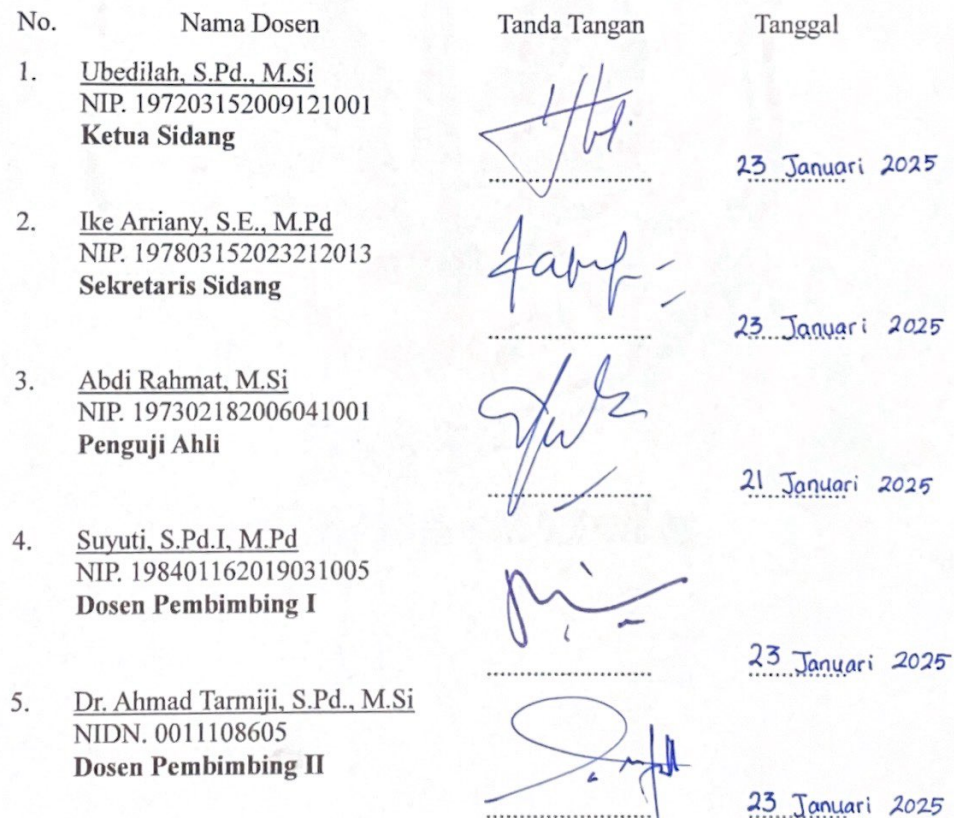 No. Nama Dosen Tanda Tangan Tanggal
1. Ubedilah, S.Pd., M.Si
NIP. 197203152009121001
Ketua Sidang
23 Januari 2025
2. Ike Arriany, S.E., M.Pd
NIP. 197803152023212013
Sekretaris Sidang
23 Januari 2025
3. Abdi Rahmat, M.Si
NIP. 197302182006041001
Penguji Ahli
21 Januari 2025
4. Suyuti, S.Pd.I, M.Pd
NIP. 198401162019031005
Dosen Pembimbing I
23 Januari 2025
5. Dr. Ahmad Tarmiji, S.Pd., M.Si
NIDN. 0011108605
Dosen Pembimbing II
23 Januari 2025